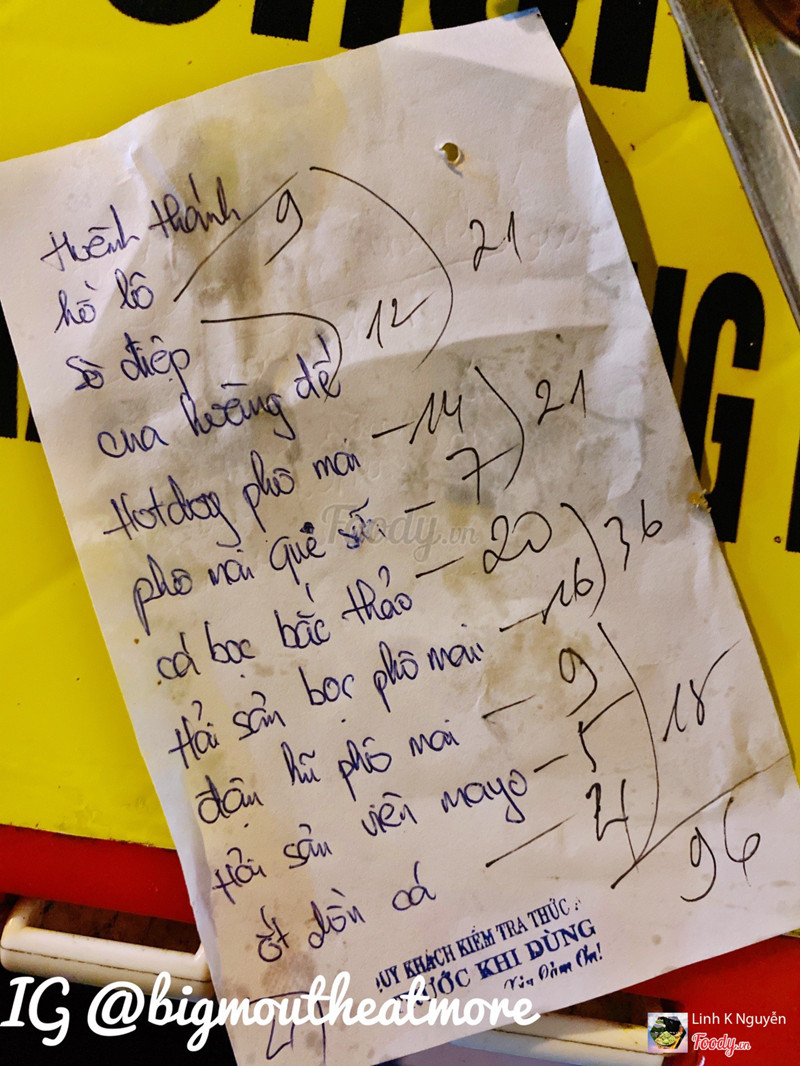 Huênh thánh 9
hồ lô 21
Sò điệp 12
cua hoàng đế
Hotdog phô mai - 14 21
phô mai que - 7
cá bọc bắc thảo - 20 36
Hải sản bọc phô mai - 16
đậu hũ phô mai - 9
Hải sản viên mayo - 5 18
ớt dồn cá - 4
96
QUÝ KHÁCH KIỂM TRA THỨC
TRƯỚC KHI DÙNG
Xin Cảm Ơn!
Foody.vn
IG @bigmoutheatmore
Linh K Nguyễn
Foody.vn